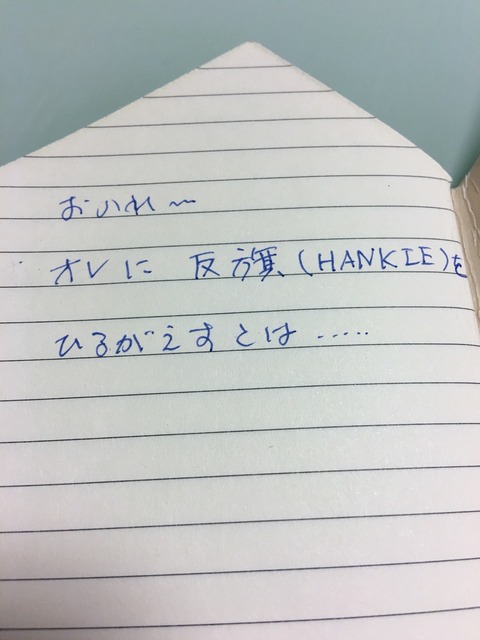 おいれ〜
オレに 反旗(HANKIE)を
ひるがえすとは.....